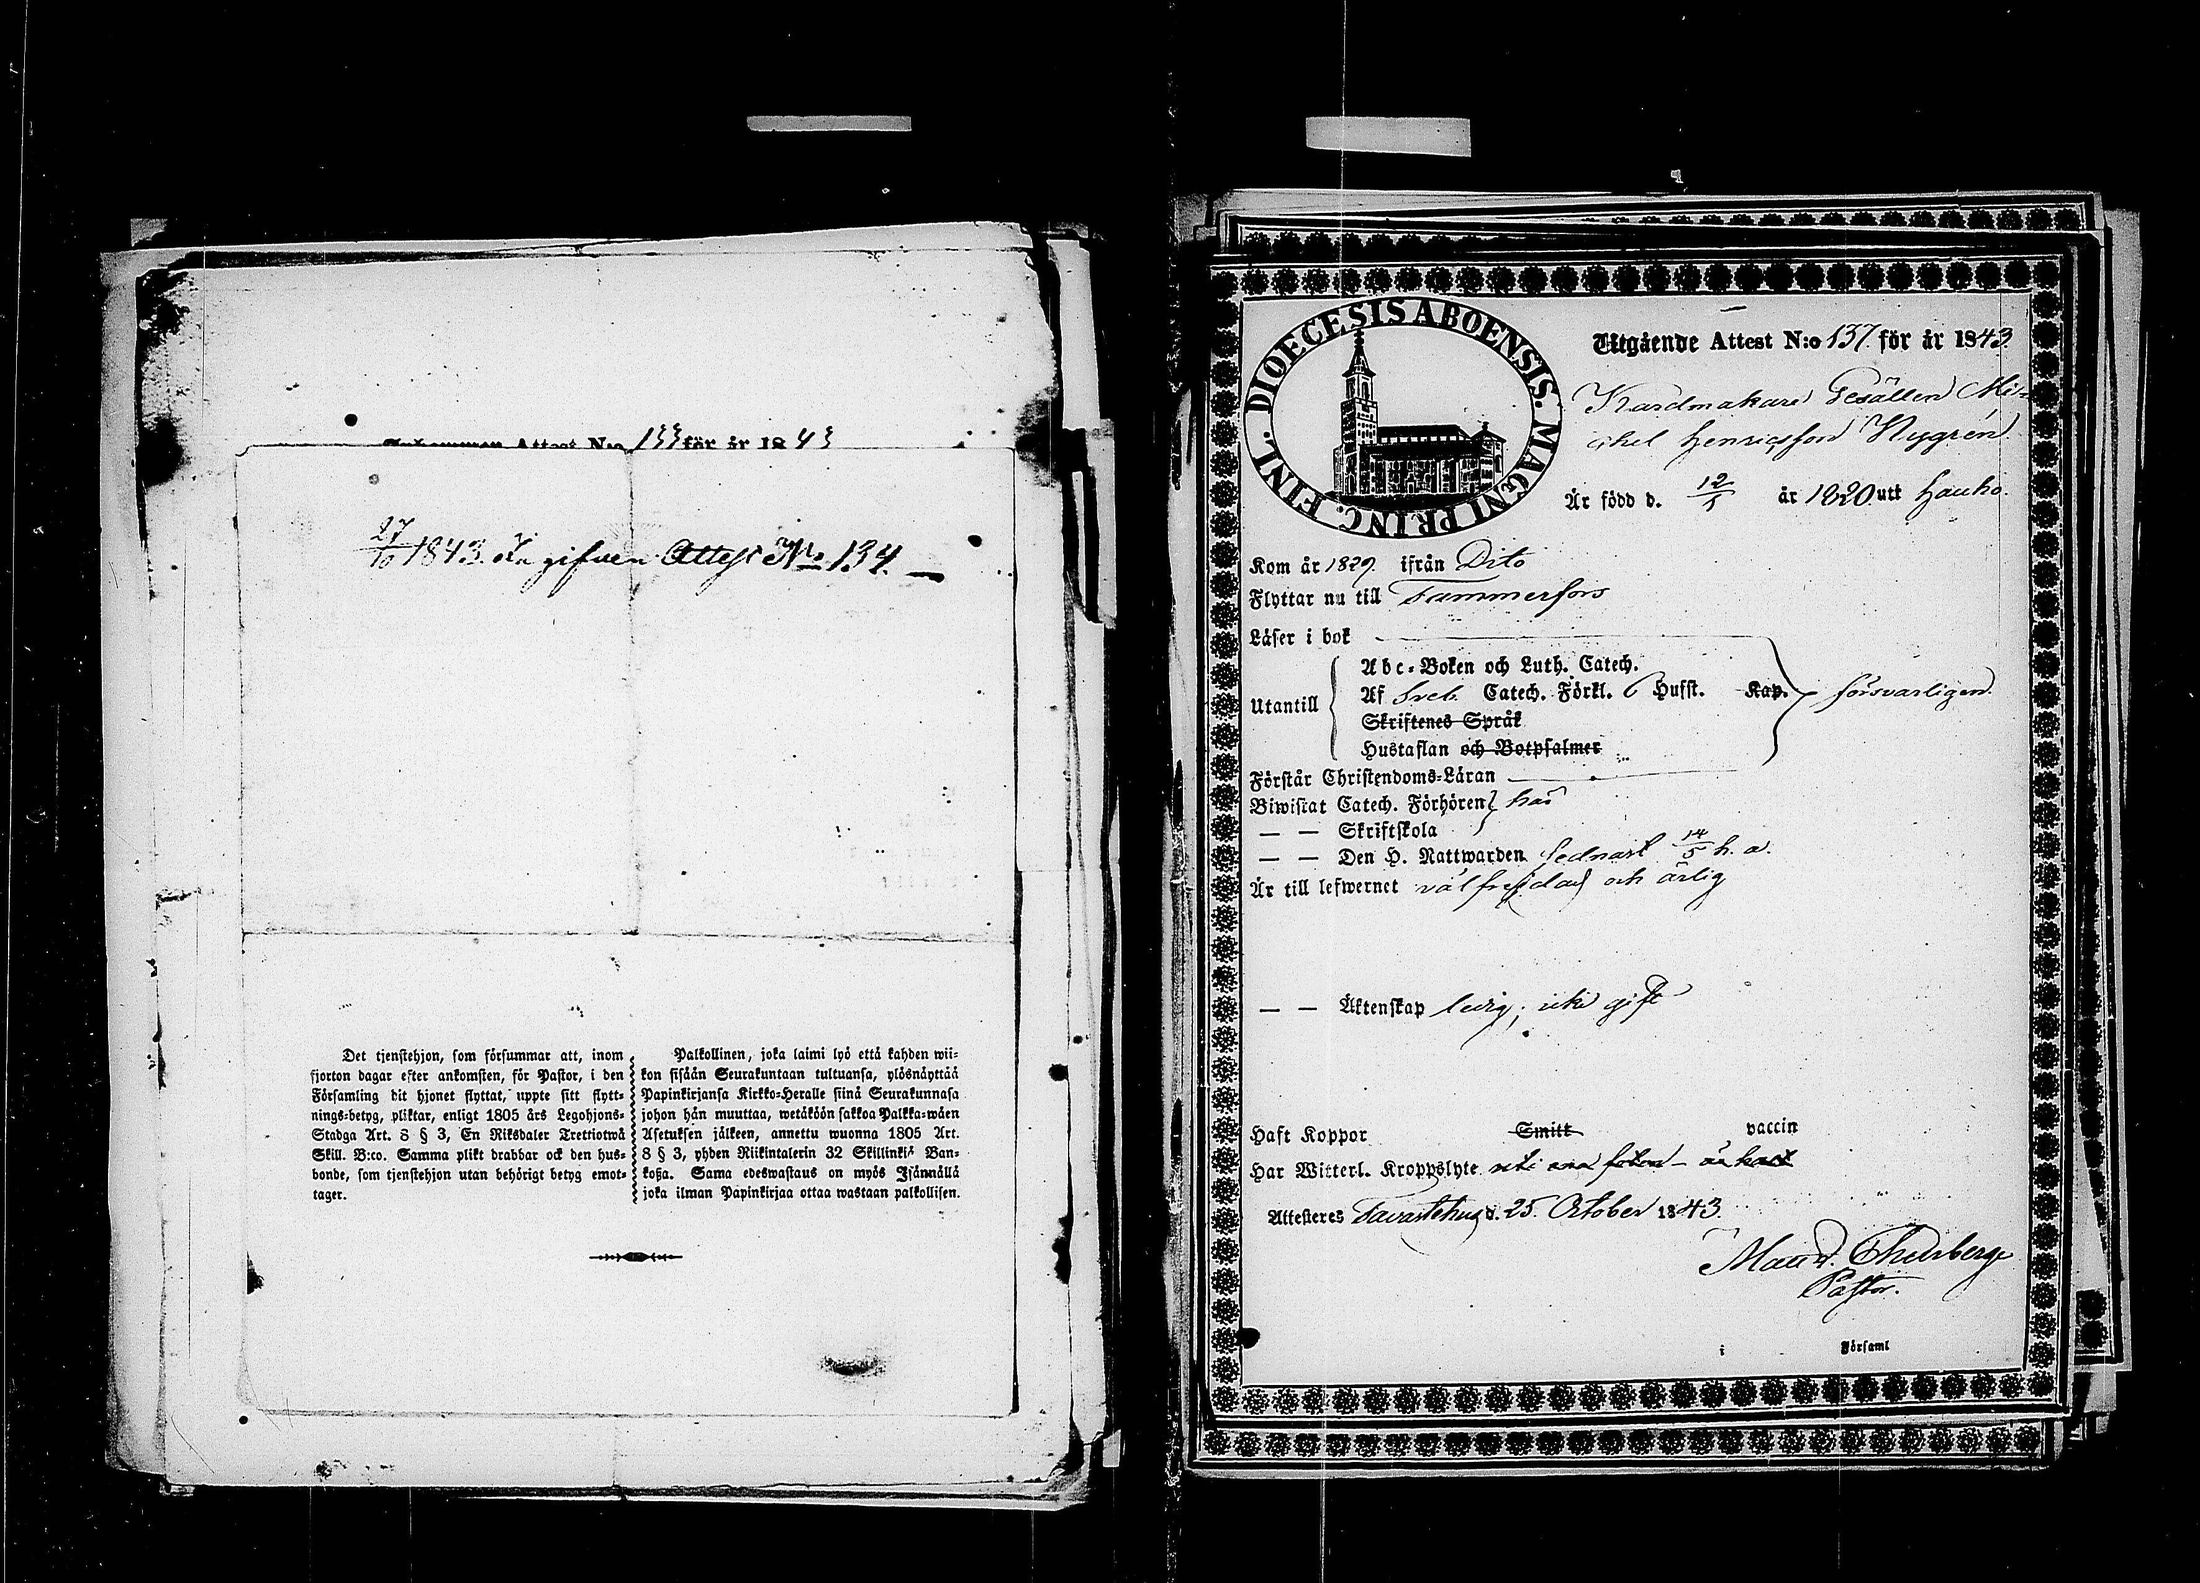 Inkommen Attest N:o 133 för år 1843
27/10 1843. In gifven Attest No 134.
Det tjenstehjon, som försummar att, inom
fjorton dagar efter ankomsten, för Pastor, i den
Församling dit hjonet flyttat, uppte sitt flytt-
nings-betyg, pliktar, enligt 1805 års Legohjons-
Stadga Art. 8 § 3, En Riksdaler Trettiotwå
Skill. B:co. Samma plikt drabbar ock den hus-
bonde, som tjenstehjon utan behörigt betyg emot-
tager.
Palkollinen, joka laimi lyö että kahden wii-
kon sisään Seurakuntaan tultuansa, ylösnäyttää
Papinkirjansa Kirkko-Heralle siinä Seurakunnasa
johon hän muuttaa, wetäköön sakkoa Palkka-wäen
Asetuksen jälkeen, annettu wuonna 1805 Art.
8 § 3, yhden Riikintalerin 32 Skillinkiä Ban-
koßa. Sama edeswastaus on myös Isännällä
joka ilman Papinkirjaa ottaa wastaan palkollisen.
DIOECESIS ABOENSIS. MAGNI PRINC. FINL.
Utgående Attest N:o 137. för år 1843.
Kardmakare Gesällen Mi-
chel Henricsson Nygrén
Är född d. 12/5 år 1820 utt Hauho.
Kom år 1829. ifrån Dito
Flyttar nu till Tammerfors
Läser i bok
Abc-Boken och Luth. Catech.
Utantill Af Sveb. Catech. Förkl. 6 Hufst. Kap. försvarligen.
Skriftenes Språk
Hustaflan och Botpsalmer
Förstår Christendoms-Läran
Biwistat Catech. Förhören har
— — Skriftskola
— — Den H. Nattwarden sednast 14/5 h. a.
Är till lefwernet välfrejdad och ärlig
— — Äktenskap ledig, icke gift
Haft Koppor Smitt vaccin
Har Witterl. Kroppslyte
Attesteres Tavastehus d. 25. October 1843.
Pastor.
i Församl